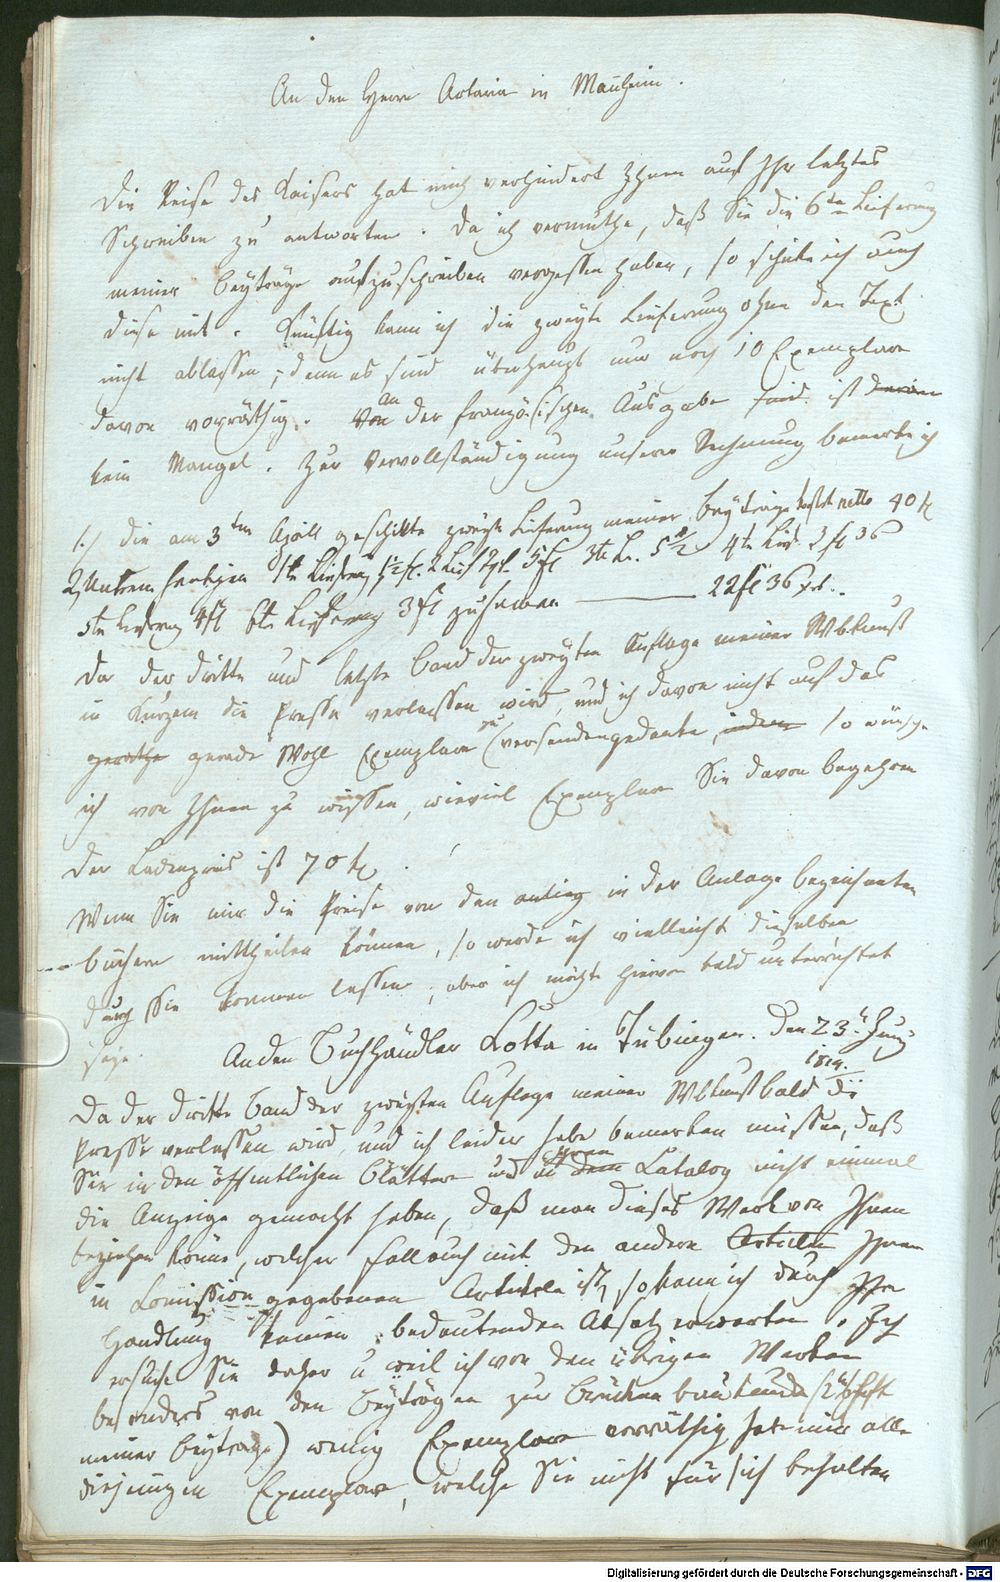 An den Herrn Artaria in Mañheim.
Die Reise des Kaisers hat mich verhindert Ihnen auf Ihr letztes
Schreiben zu antworten. Da ich vermuthe, daß Sie die 6te Lieferung
meiner Beyträge aufzuschreiben vergessen haben, so schicke ich auch
diese mit. Künftig kann ich die zweyte Lieferung ohne den Text
nicht ablassen, denn es sind überhaupt nur noch 10 Exemplare
davon vorräthig. an der französischen Ausgabe ist
kein Mangel. Zur Vervollständigung unserer Rechnung bemerke ich
1./ die am 3ten April geschikte zweyte Lieferung meiner Beyträge kostet netto 40 fl
2, 1te Lieferung 2 Lief 5 fl 3te L. 5 1/2 4te Lief. 3 fl 36
5te Lieferung 4 fl 6te Lieferung 3 fl zusamen 22 fl 36 xr.
Da der dritte und letzte Band der zweyten Auflage meiner Wbkunst
in Kurzem die Presse verlassen wird, und ich davon nicht auf das
gerathe gerade Wohl Exemplare zu versenden gedenke, indem so wünsche
ich von Ihnen zu wissen, wieviel Exemplare Sie davon begehren
der Ladenpreis ist 70 fl.
Wenn Sie mir die Preise von den in der Anlage bezeichneten
Büchern mittheilen können, so werde ich vielleicht dieselben
durch Sie kommen lassen, aber ich möchte hievon bald unterrichtet
seyn.
An den Buchhändler Cotta in Tübingen. Den 23t Juny
1819.
Da der dritte Band der zweyten Auflage meiner Wbkunst bald die
Presse verlassen wird, und ich leider habe bemerken müssen, daß
Sie in den öffentlichen Blättern und in dem Ihrem Catalog nicht einmal
die Anzeige gemacht haben, daß man dieses Werk von Ihnen
beziehen könne, welcher Fall auch mit den andern Artikeln Ihnen
in Comission gegebenen Artikeln ist, so kann ich durch Ihre
Handlung keinen bedeutenden Absatz erwarten. Ich
ersuche Sie daher u weil ich von den übrigen Werken
besonders von den Beyträgen zur Brückenbaukunde
meiner Beyträge) wenig Exemplare vorräthig habe mir alle
diejenigen Exemplare, welche Sie nicht für sich behalten
Digitalisierung gefördert durch die Deutsche Forschungsgemeinschaft - DFG